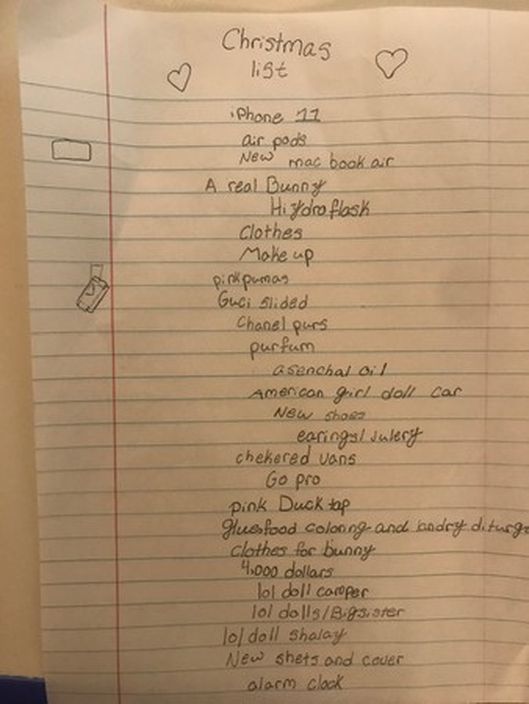 Christmas
list
iPhone 11
air pods
New mac book air
A real Bunny
Hiydroflask
Clothes
Make up
pink pumas
Guci slided
Chanel purs
purfum
asenchal oil
American girl doll car
New shoes
earings/julery
chekered vans
Go pro
pink Duck tap
glue,food coloring and londry diturg
clothes for bunny
4,000 dollars
lol doll camper
lol dolls/Bigsister
lol doll shalay
New shets and cover
alarm clock